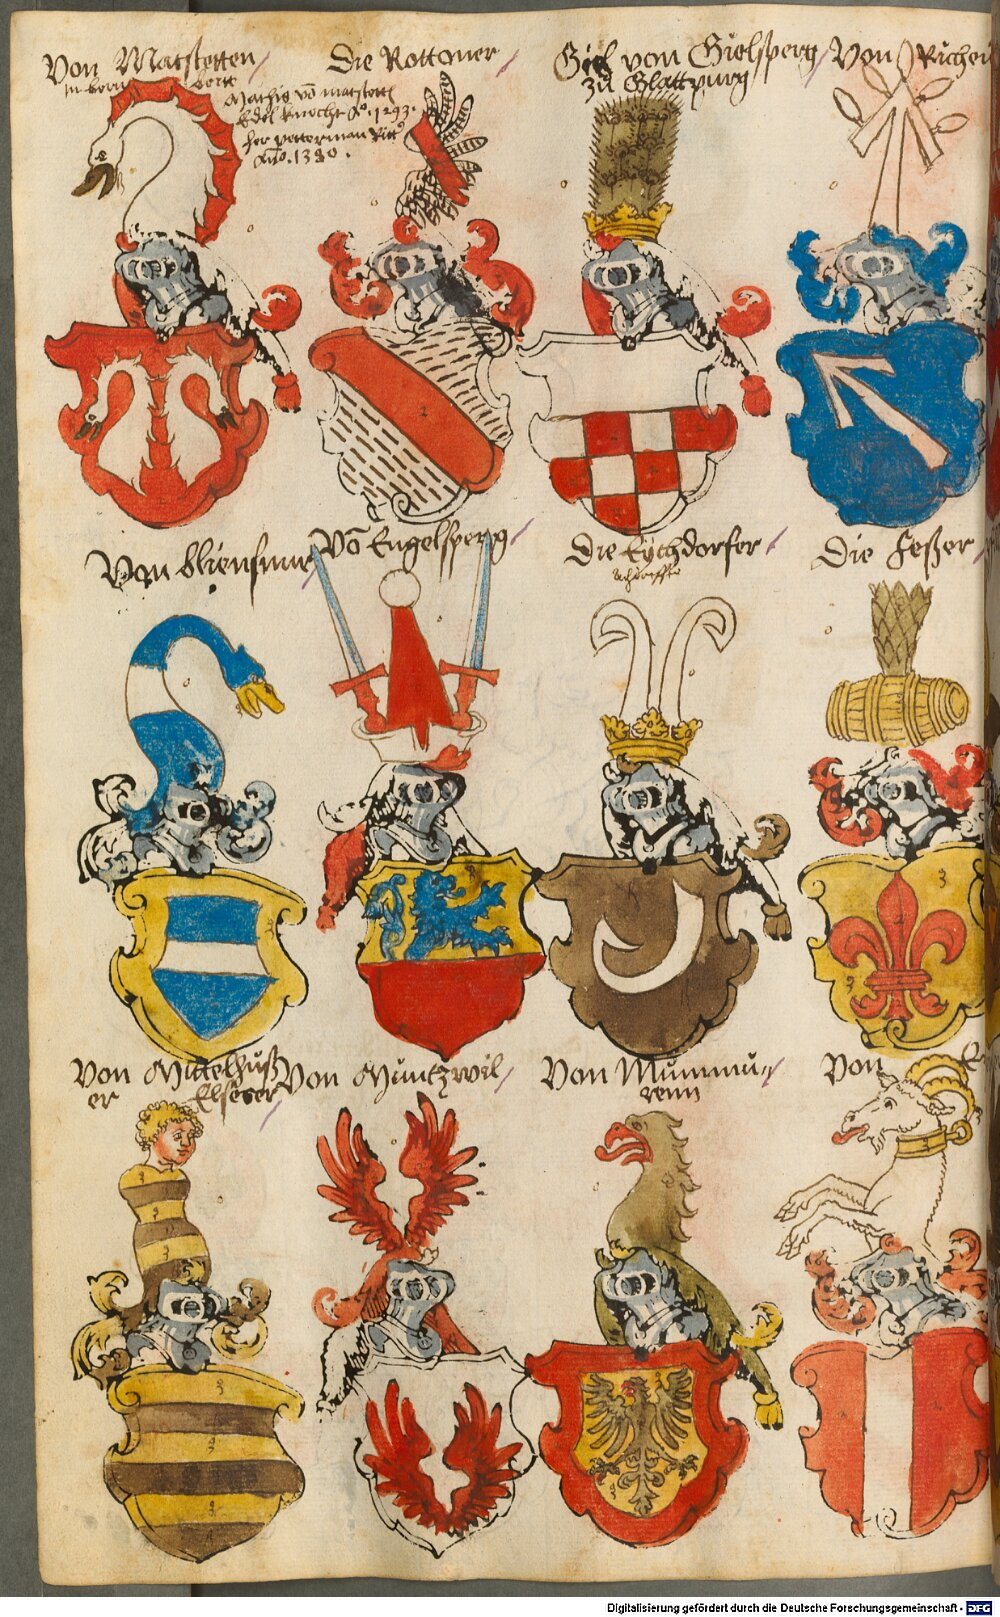 Von Matstetten
in bern
Mathis võ matstett
Edel knecht Aº. 1293.
her petterman Ritt
Año. 1380.
Die Rottoner
Giel von Gielsperg
zu Glattpurg
Von
Von
Võ Engelsperg
Die Eychdorfer
Die Feßer
Von Mittelhuß
er
Elseser
Von Müntzwil
Von Mummu
renn
Von
Digitalisierung gefördert durch die Deutsche Forschungsgemeinschaft - DFG